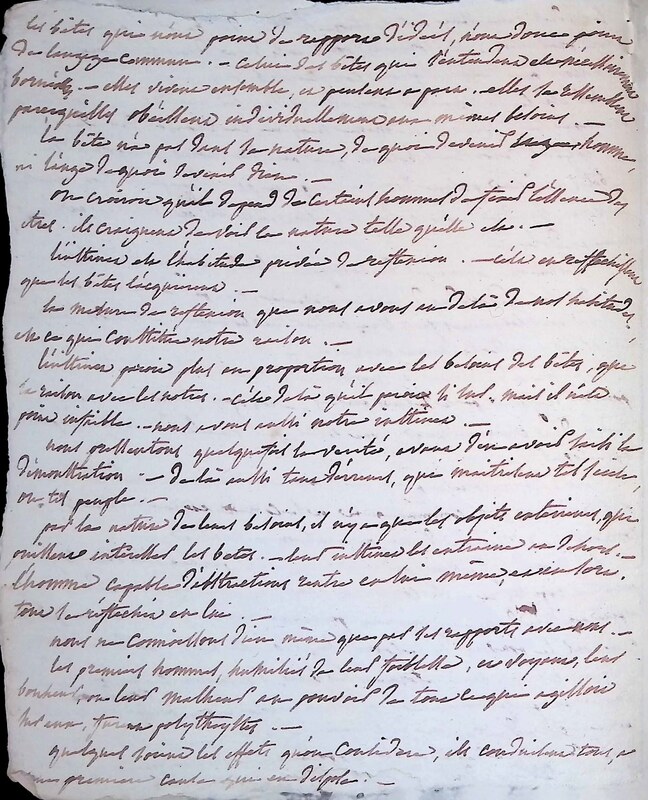 les bêtes qui n'ont point de rapports d'idées, n'ont donc point
de langage commun. - celui des bêtes qui s'entendent est nécessairement
borné. - elles vivent ensemble, et pensent a part. elles se ressemblent
parcequ'elles obéissent individuellement aux mêmes besoins. -
la bête n'a pas dans sa nature, de quoi devenir homme,
ni l'ange de quoi devenir dieu. -
On croiroit qu'il depend de certains hommes de fixer l'essence des
êtres. ils craignent de voir la nature telle qu'elle est. -
l'instinct est l'habitude privée de reflexion. - c'est en reflechissant
que les bêtes l'acquierent. -
la mesure de reflexion que nous avons au delà de nos habitudes,
est ce qui constitue notre raison. -
l'instinct paroit plus en proportion avec les besoins des bêtes, que
la raison avec les notres. - c'est delà qu'il paroit si sur. mais il n'est
point infaillible. - nous avons aussi notre instinct. -
nous pressentons quelquefois la verité, avant d'en avoir saisi la
démonstration. - delà aussi tant d'erreurs, que maitrisent tel siecle,
ou tel peuple. -
par la nature de leurs besoins, il n'y a que les objets exterieurs, qui
puissent interesser les bêtes. - leur instinct les entraine au dehors. -
l'homme capable d'abstractions rentre en lui même, et en sort.
tout se reflechit en lui. -
nous ne connoissons d'eux même que par ses rapports avec nous. -
les premiers hommes, humiliés de leur foiblesse, et voyant, leur
bonheur, ou leur malheur au pouvoir de tout ce qui agissoit
sur eux, furent polytheystes. -
quelques soient les effets qu'on considere, ils conduisent tous, a
une premiere cause qui en dispose. -